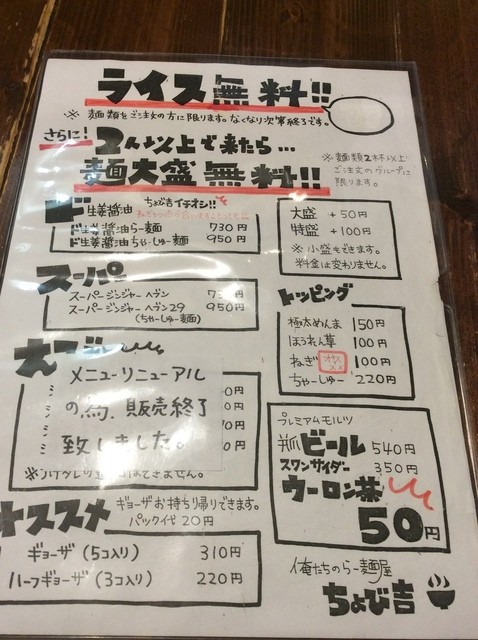 ライス無料!!
※麺類をご注文の方に限ります。なくなり次第終了です。
さらに!
2人以上で来たら…
麺大盛無料!!
※麺類2杯以上
ご注文のグループに
限ります。
ド生姜醤油 ちょび吉イチオシ!!
ド生姜醤油らー麺 730円
ド生姜醤油ちゃーしゅー麺 950円
大盛 +50円
特盛 +100円
※小盛もできます。
料金は変わりません。
スーパー
スーパージンジャーヘヴン
スーパージンジャーヘヴン29 950円
(ちゃーしゅー麺)
トッピング
極太めんま 150円
ほうれん草 100円
ねぎ オススメ 100円
ちゃーしゅー 220円
メニューリニューアル
の為、販売終了
致しました。
プレミアムモルツ
ビール 540円
スワンサイダー 350円
ウーロン茶
50円
オススメ ギョーザお持ち帰りできます。
パック代 20円
ギョーザ(5コ入り) 310円
ハーフギョーザ(3コ入り) 220円
俺たちのらー麺屋
ちょび吉